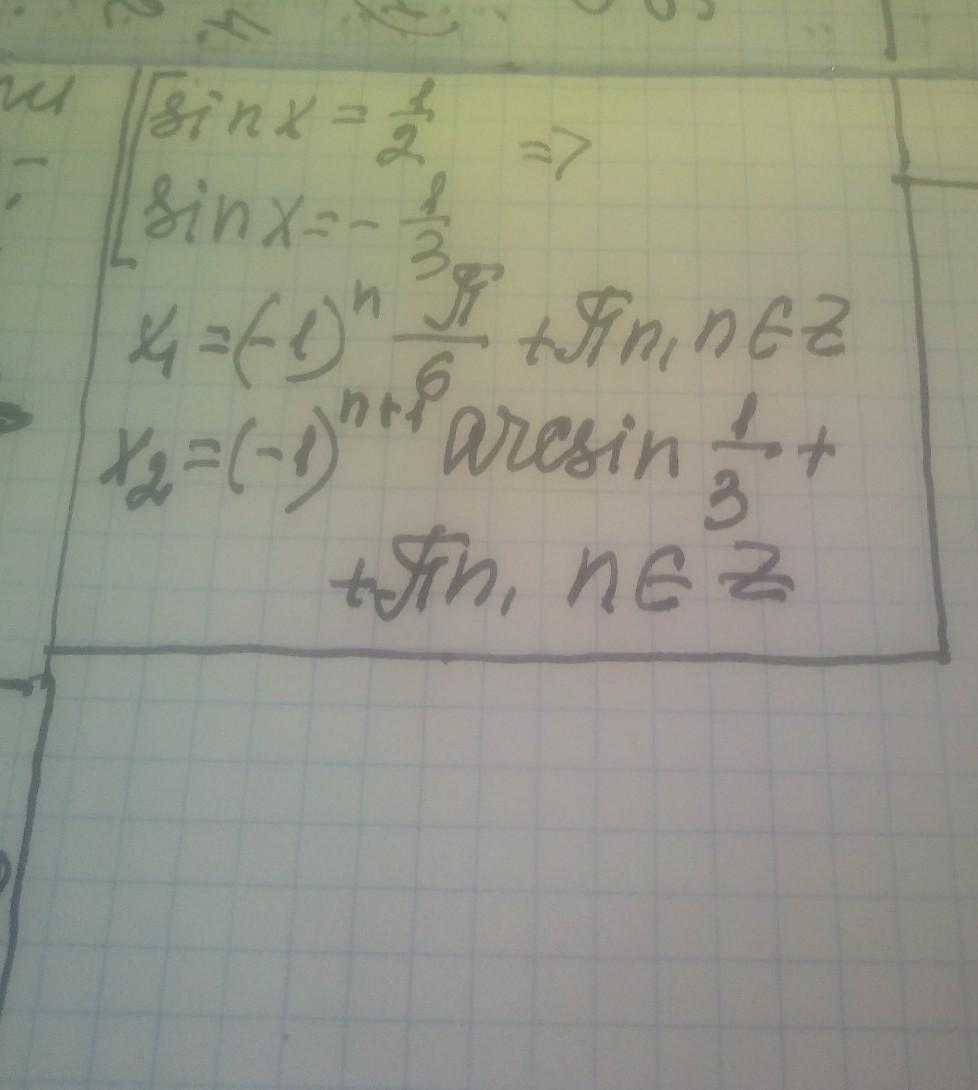 [ sin x = 1/2 =>
[ sin x = - 1/3
x₁ = (-1)ⁿ π/6 + πn, n ∈ Z
x₂ = (-1)ⁿ⁺¹ arcsin 1/3 +
+ πn, n ∈ Z